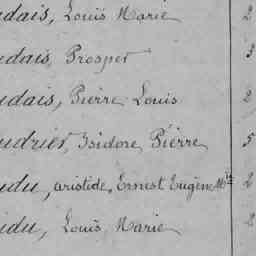 udais, Louis Marie 2
udais, Prosper 3
udais, Pierre Louis 2
udrier, Isidore Pierre 5
udu, aristide, Ernest Eugène Mie 2
udu, Louis Marie 2